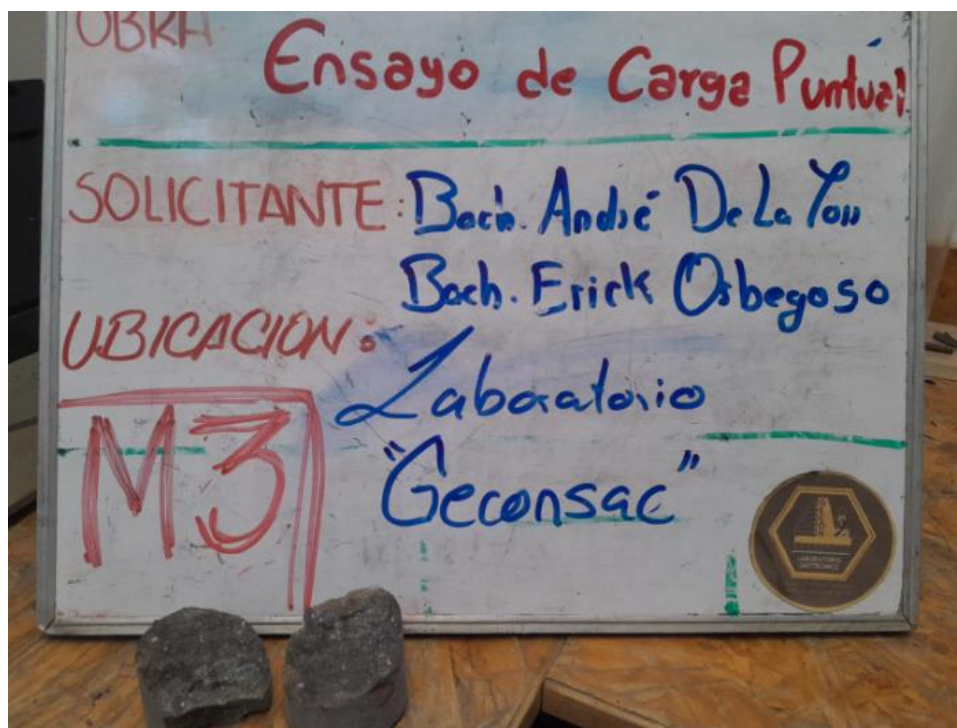 OBRA
Ensayo de Carga Puntual
SOLICITANTE: Bach. André De La
Bach. Erick Orbegoso
UBICACION:
Laboratorio
M3
"Geconsac"
LABORATORIO
GEOTECNICO